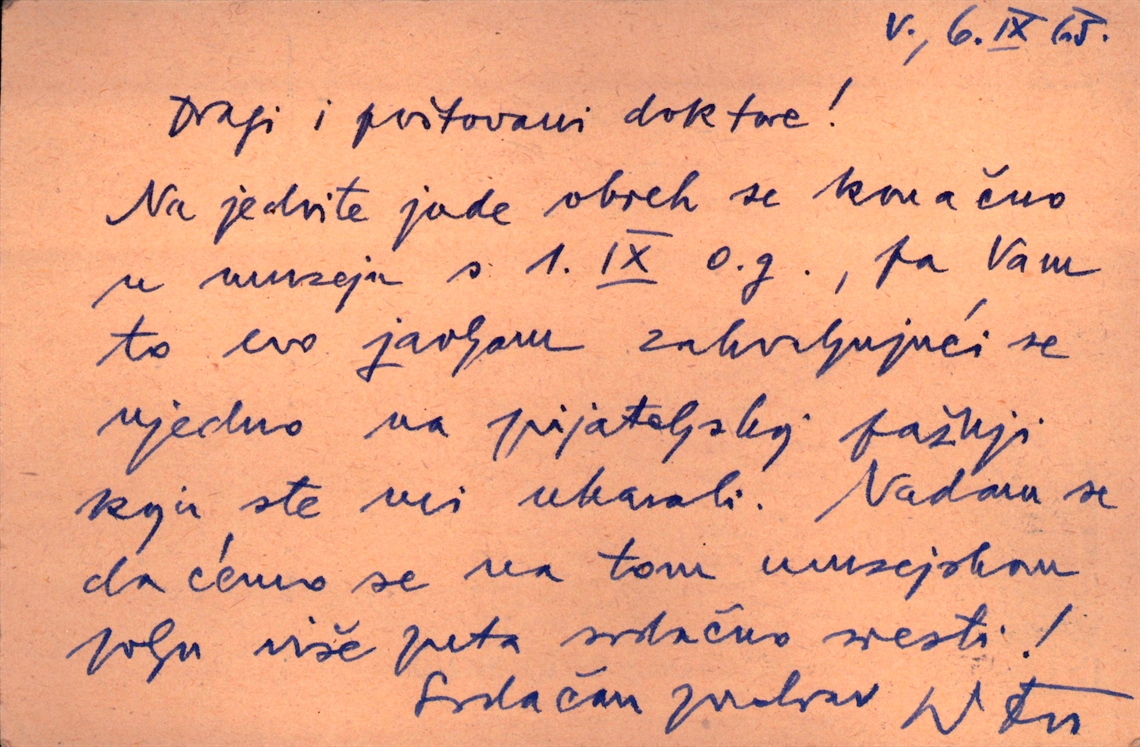 V., 6. IX 65.
Dragi i poštovani doktore!
Na jedvite jade obreh se konačno
u muzeju s 1. IX o.g., pa Vam
to evo javljam zahvaljujući se
ujedno na prijateljskoj pažnji
koju ste mi ukazali. Nadam se
da ćemo se na tom muzejskom
polju više puta srdačno sresti!
Srdačan pozdrav